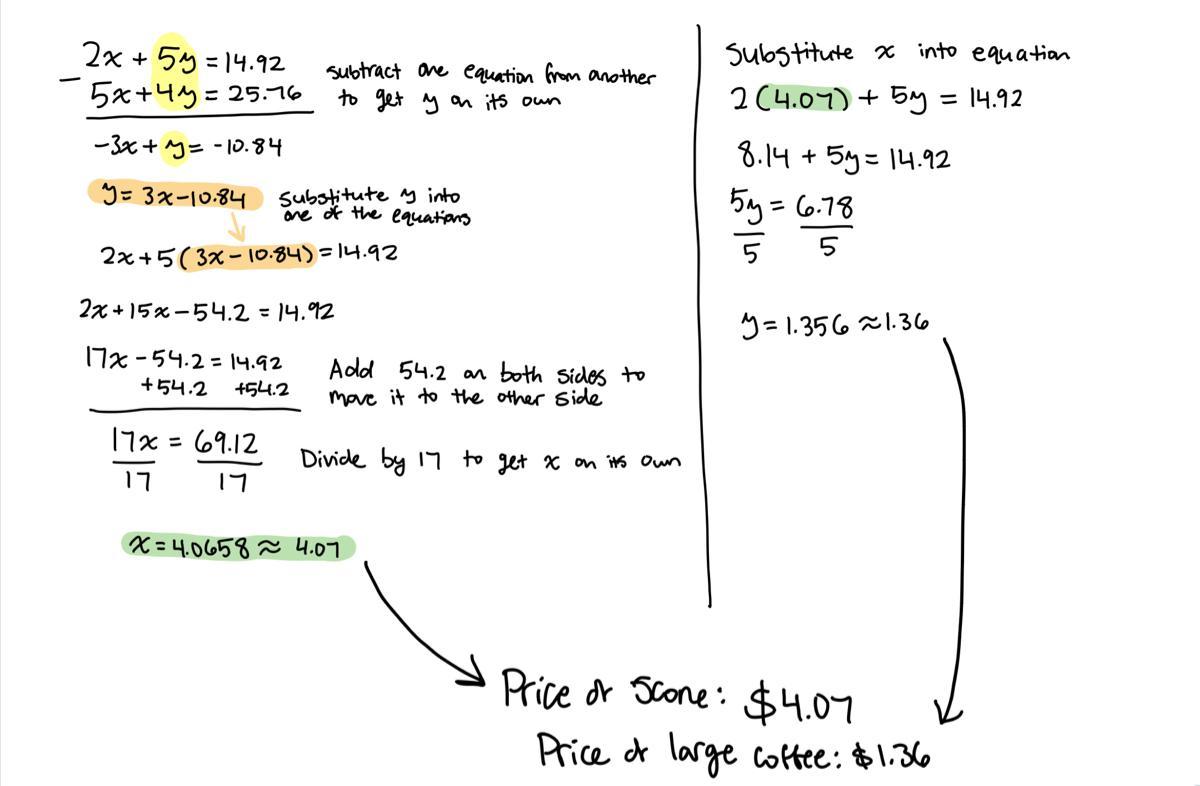 2x + 5y = 14.92
− 5x + 4y = 25.76
subtract one equation from another
to get y on its own
-3x + y = -10.84
y = 3x - 10.84
substitute y into
one of the equations
2x + 5 (3x - 10.84) = 14.92
2x + 15x - 54.2 = 14.92
17x - 54.2 = 14.92
+54.2 +54.2
Add 54.2 on both sides to
move it to the other side
17x = 69.12
17 17
Divide by 17 to get x on its own
x = 4.0658 ≈ 4.07
Substitute x into equation
2 (4.07) + 5y = 14.92
8.14 + 5y = 14.92
5y = 6.78
5 5
y = 1.356 ≈ 1.36
Price of Scone: $4.07
Price of large coffee: $1.36